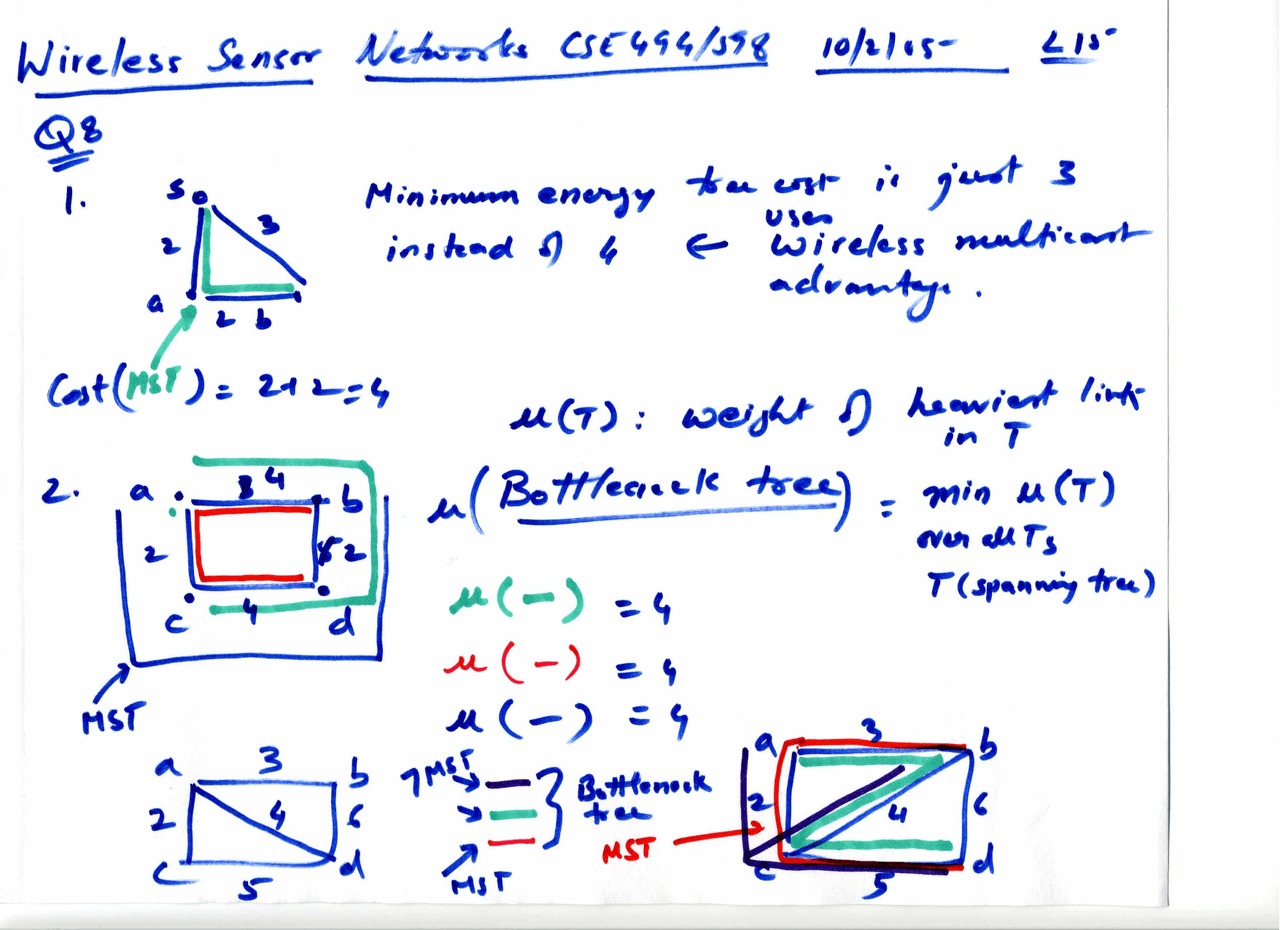 Wireless Sensor Networks CSE494/598 10/2/15 L15
Q8
1.
s
2
3
a
2 b
Minimum energy tree cost is just 3
instead of 4 ← uses wireless multicast
advantage.
Cost(MST) = 2+2=4
μ(T): weight of heaviest link
in T
2.
a
4
b
2
2
c
4
d
MST
μ(Bottleneck tree) = min μ(T)
over all Ts
T (spanning tree)
μ(—) = 4
μ(—) = 4
μ(—) = 4
a 3 b
2 4 6
c 5 d
7MST
Bottleneck
tree
MST
MST
a 3 b
2 4 6
c 5 d